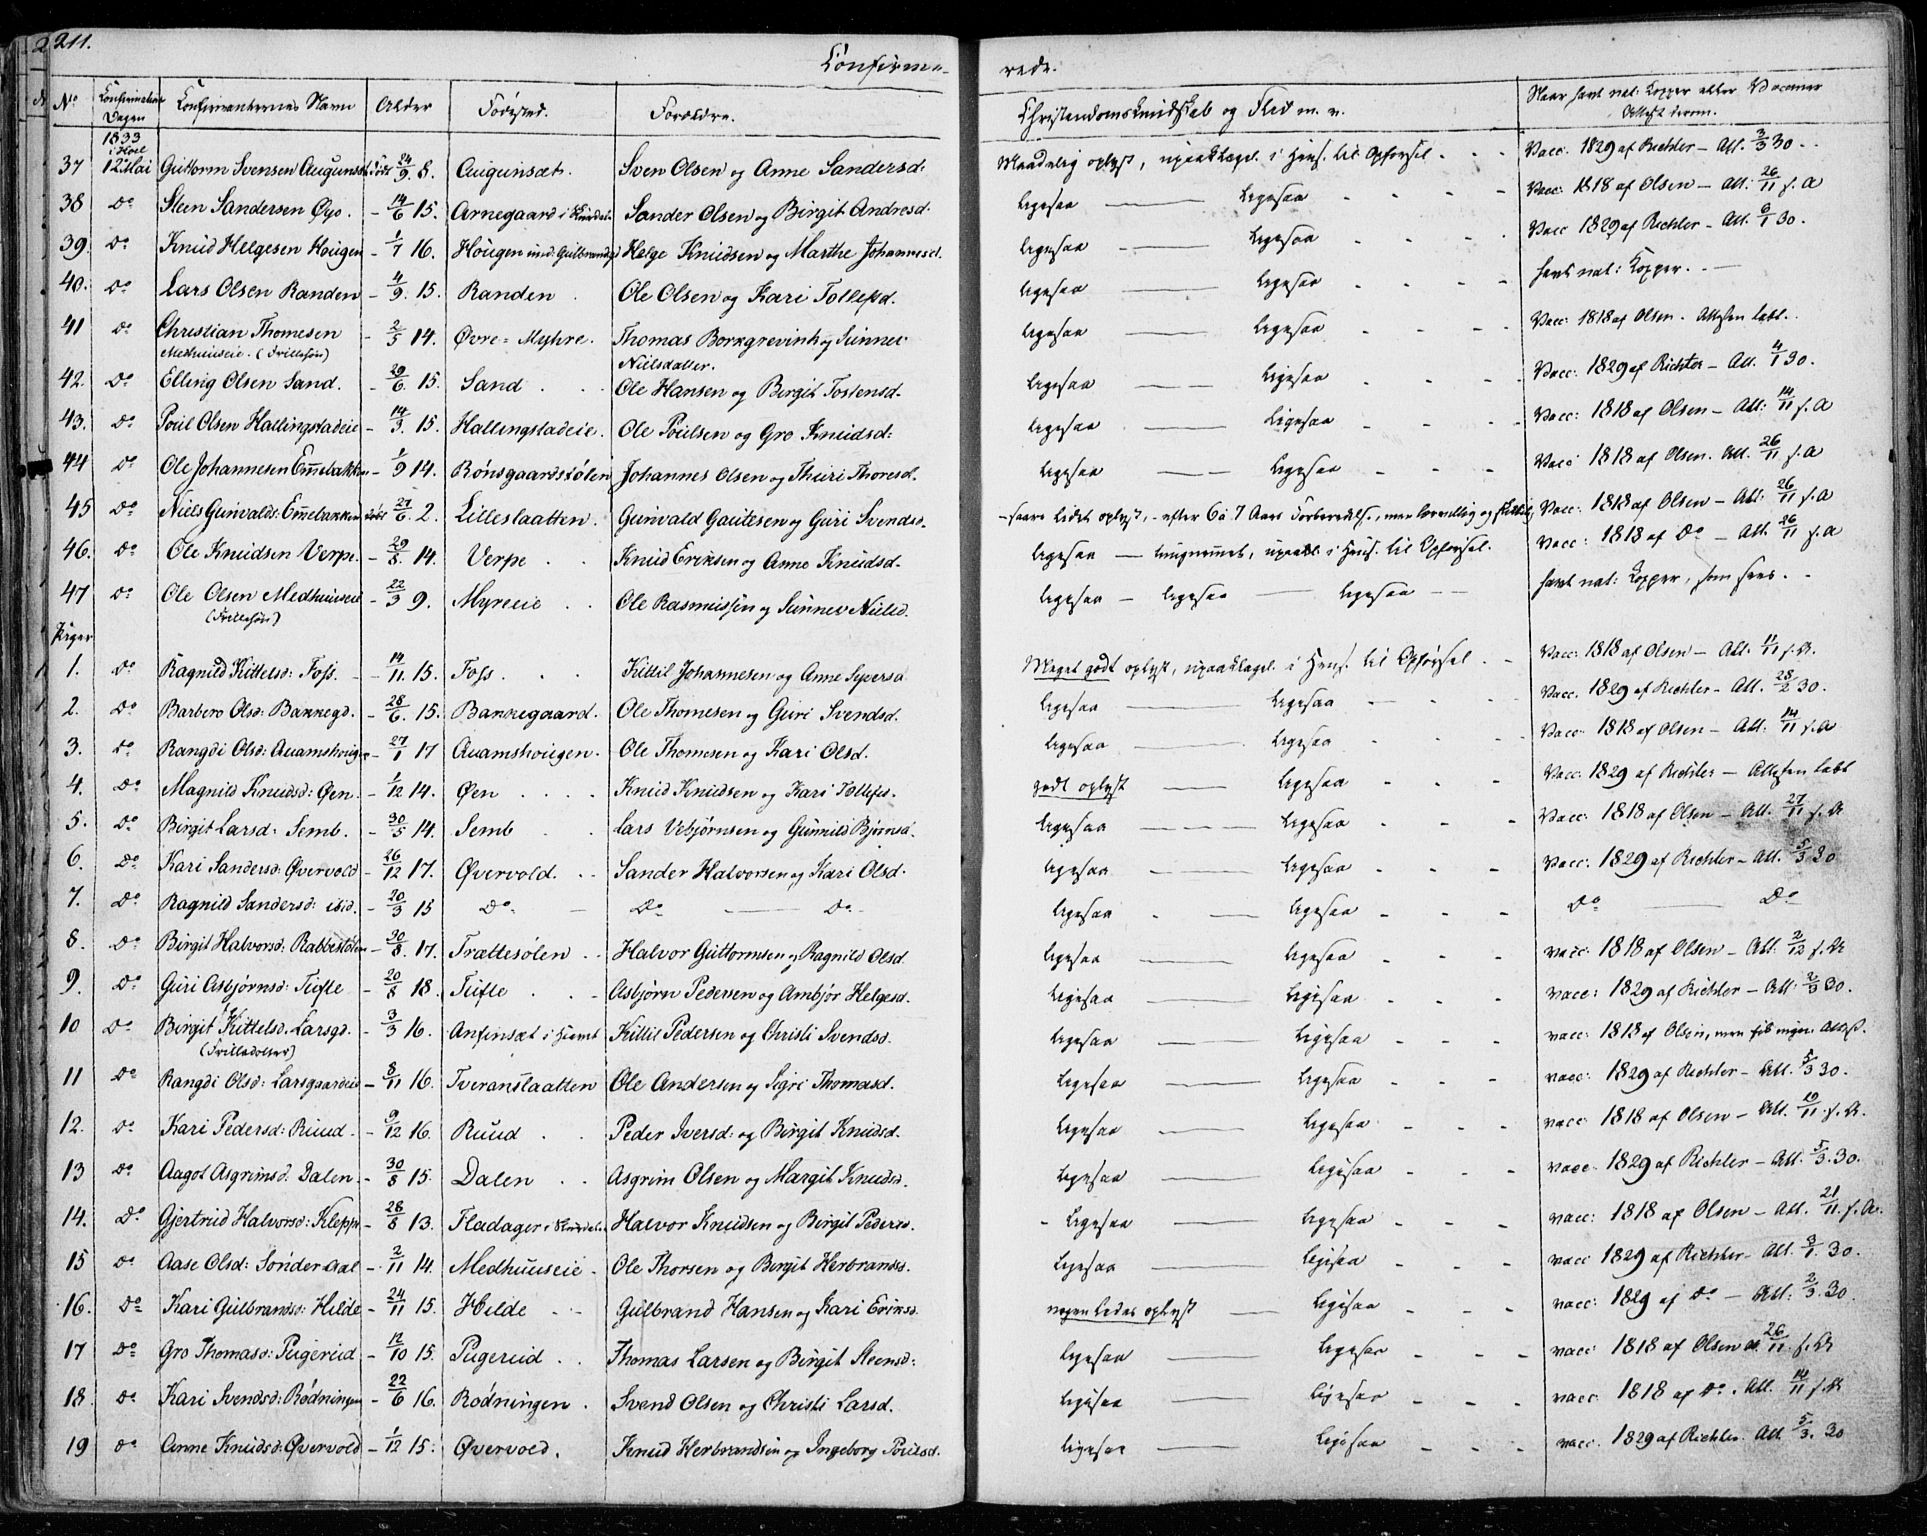 211.
Confirme-
rede.
No Confirmations Dagen Confirmanternes Navn Alder Fødested. Forældre. Christendomskundskab og Flid m. v. Naar havt nat: Kopper eller Vaccineret Attest derom.
1833
i Hoel
37 12 Mai Guttorm Svensen Augunset født 24/9. 8. Augunsæt. Sven Olsen og Anne Sandersd: Maadelig oplyst, upaaklagel. i Hens. til Opførsel - - - Vacc. 1829 af Richter - Att. 3/3 30. -
38 Do Steen Sandersen Øyo. - 14/6 15. Arnegaard i Sander Olsen og Birgit Andresd. ligesaa ligesaa - - - Vacc: 1818 af Olsen - Att: 26/11 s. A
39. Do Knud Helgesen Hougen - 1/7 16. Hougen Helge Knudsen og Marthe Johannesd. ligesaa ligesaa - - - Vacc 1829 af Richter - Att. 6/1 30.
40. Do Lars Olsen Randen - 4/9. 15. Randen Ole Olsen og Kari Tollefsd. ligesaa ligesaa - - - havt nat: Kopper. -
41 Do Christian Thomesen - 2/5 14. Øvre = Myhre. Thomas Borkgrevink og Sunnev ligesaa ligesaa - - - Vacc: 1818 af Olsen. Attesten tabt.
Medhuuseie. (Frillesøn) Nielsdatter.
42. Do Elling Olsen Sand. - 29/6. 15. Sand Ole Hansen og Birgit Tostensd. ligesaa ligesaa - - - Vacc: 1829 af Richter - Att. 4/1 30.
43. Do Poul Olsen Hallingstadeie - 14/3. 15. Hallingstadeie. Ole Poulsen og Gro Knudsd: ligesaa ligesaa - - - Vacc: 1818 af Olsen - Att: 14/11 s. A
44 Do Ole Johannesen Emebakken - 1/9 14. Rønsgaardstølen Johannes Olsen og Thuri Thoresd. ligesaa ligesaa - - - Vacc 1818 af Olsen. Att. 26/11 s. A
45 Do Niels Gunvalds: Emebakken født 27/6 2. Lilleslaatten. Gunvald Gautesen og Guri Svendsd. - saare lidet oplyst, - efter 6 à 7 Aars Forberedelse, men Vacc: 1818 af Olsen - Att: 26/11 s. A
46. Do Ole Knudsen Verpe. - 29/8. 14. Verpe Knud Eriksen og Anne Knudsd. ligesaa - tungnemmet, upaakl. i Hens. til Opførsel. Vacc: 1818 af Do - Att. 26/11 s. A
47 Do Ole Olsen Medhuuseie - 22/3 9. Myreeie Ole Rasmussen og Sunnev Nielsd. ligesaa - ligesaa ligesaa - - havt nat: Kopper, som sees. -
(Frillesøn)
Piger
1. Do Ragnild Kittelsd: Foss. - 14/11. 15. Foss. Kittil Johannesen og Anne Syversd Meget godt oplyst, upaaklagel. i Hens. til Opførsel. - Vacc: 1818 af Olsen - Att. 11/11 s. A.
2. Do Barbero Olsd: Bakkegd. - 28/6. 15. Bakkegaard. Ole Thomesen og Guri Svendsd. ligesaa ligesaa - - - Vacc. 1829 af Richter - Att. 28/2 30.
3. Do Rangdi Olsd: Qvamshougen - 27/1 17 Qvamshougen. Ole Thomesen og Kari Olsd. ligesaa ligesaa - - - Vacc: 1818 af Olsen - Att: 14/11 s. A
4. Do Magnild Knudsd: Øen. - 1/12 14. Øen Knud Knudsen og Kari Tollefsd. godt oplyst ligesaa - - - Vacc: 1829 af Richter - Attesten tabt
5. Do Birgit Larsd: Semb. - 30/5 14. Semb Lars Vebjørnsen og Gunnild Bjørnsd. ligesaa ligesaa - - - Vacc: 1818 af Olsen - Att. 27/11 s. A
6. Do Kari Sandersd: Øvervold - 26/12 17. Øvervold. Sander Halvorsen og Kari Olsd. ligesaa ligesaa - - - Vacc: 1829 af Richter - Att. 5/3 30
7. Do Ragnild Sandersd: ibid. - 20/3 15 Do Do Do ligesaa ligesaa - - - Do Do
8. Do Birgit Halvorsd: Rabbestølen - 30/8. 17. Trættesølen Halvor Guttormsen og Ragnild Olsd. ligesaa ligesaa - - - vacc: 1818 af Olsen - Att: 2/12 s. A
9. Do Guri Asbjørnsd: Tufte - 20/8 18. Tufte Asbjørn Pedersen og Ambjør Helgesd. ligesaa ligesaa - - - vacc: 1829 af Richter - Att: 2/3 30.
10 Do Birgit Kittelsd: Larsgd. - 3/3 16. Anfinsæt i Hemt Kittil Pedersen og Christi Svendsd. ligesaa ligesaa - - - vacc: 1818 af Olsen, men fik ingen Attest.
(Frilledotter)
11 Do Rangdi Olsd: Larsgaardeie - 8/11 16. Tveranslaatten Ole Andersen og Sigri Thomasd. ligesaa ligesaa - - - vacc: 1829 af Richter - Att. 5/3 30.
12. Do Kari Pedersd: Ruud. - 9/12 16. Ruud Peder Iversd: og Birgit Knudsd. ligesaa ligesaa - - - vacc: 1818 af Olsen - Att. 19/11. s. A.
13 Do Aagot Asgrimsd: Dalen. - 30/8 15. Dalen Asgrim Olsen og Margit Knudsd. ligesaa ligesaa - - - vacc: 1829 af Richter - Att. 5/3. 30.
14. Do Gjertrud Halvorsd: Klepp - 28/8 13. Fladager i Halvor Knudsen og Birgit Pedersd. - ligesaa ligesaa - - - vacc: 1818 af Olsen - Att. 21/11. s. A.
15 Do Aase Olsd: Sønder Aal - 2/11 14. Medhuuseie - Ole Thorsen og Birgit Herbrandsd. ligesaa ligesaa - - - vacc: 1829 af Richter - Att. 3/1. 30.
16. Do Kari Gulbrandsd: Hilde - 24/11 15. Hilde Gulbrand Hansen og Kari Eriksd. nogenledes oplyst ligesaa - - - vacc: 1829 af Do - Att: 2/3. 30.
17 Do Gro Thomasd: Pugerud - 12/10 15. Pugerud Thomas Larsen og Birgit Steensd: ligesaa ligesaa - - - vacc: 1818 af Olsen 26/11 s. A
18. Do Kari Svendsd: Rødningen - 22/6 16. Rødningen Svend Olsen og Christi Larsd. ligesaa ligesaa - - - vacc: 1818 af Do. Att. 14/11 s. A
19 Do Anne Knudsd: Øvervold - 1/12 15. Øvervold. Knud Herbrandsen og Ingeborg Poulsd. ligesaa ligesaa - - - vacc: 1829 af Richter. Att. 5/3. 30